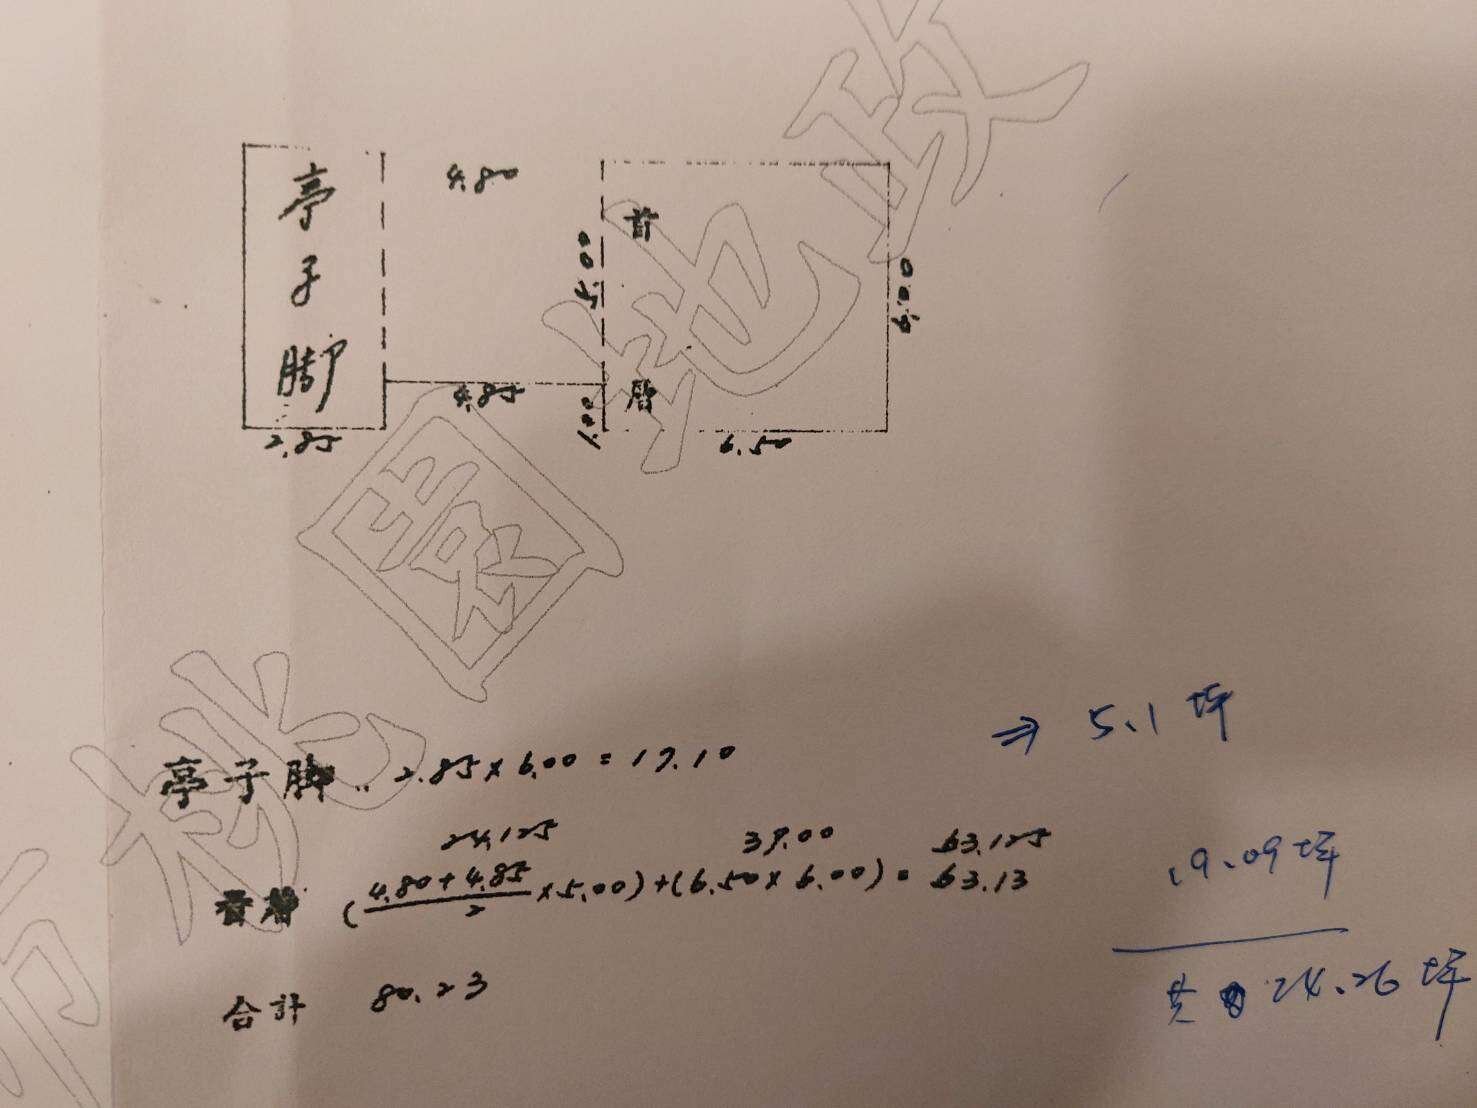 亭子脚
4.80
首層
5.00
6.00
4.85
1.00
2.85
6.50
桃園地政
亭子脚 2.85×6.00=17.10 ⇒ 5.1坪
24.125 39.00 63.125
(4.80+4.85/2×5.00)+(6.50×6.00)=63.13 19.09坪
合計 80.23 共 24.26坪